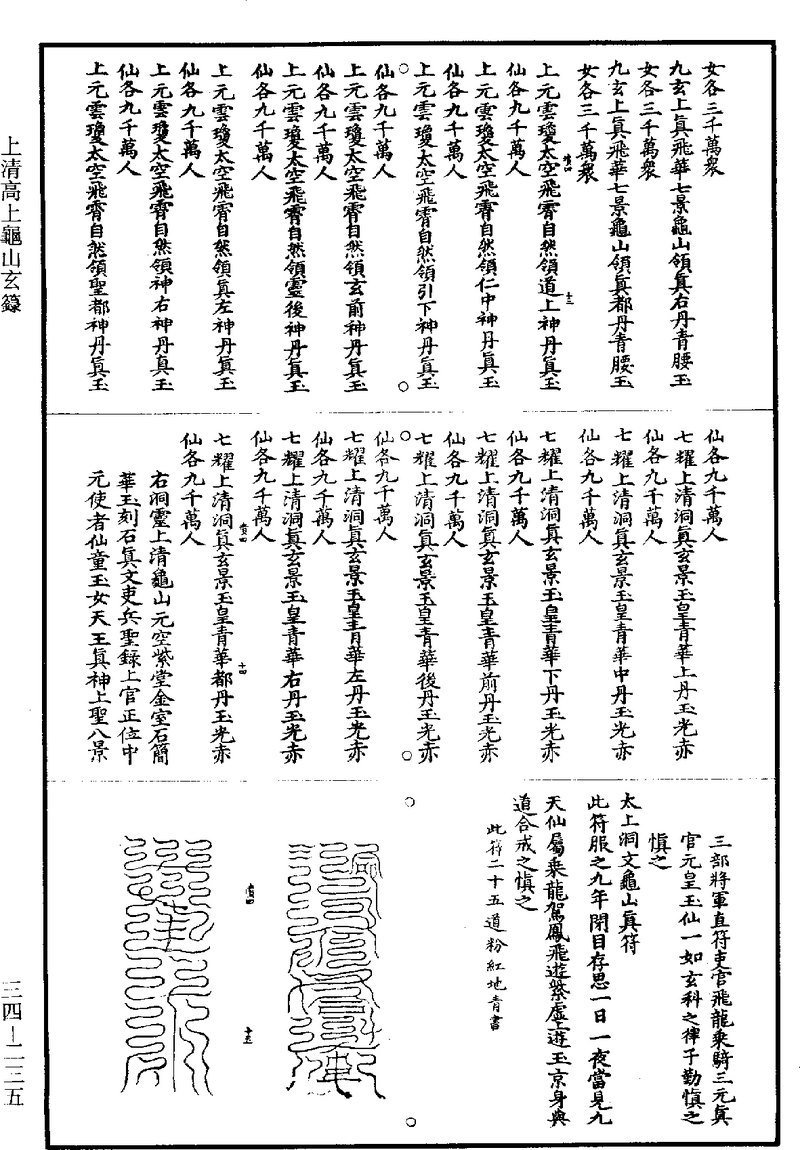 女各三千萬衆
九玄上眞飛華七景龜山領眞右丹青腰玉
女各三千萬衆
九玄上眞飛華七景龜山領眞都丹青腰玉
女各三千萬衆
上元雲瓊太空飛霄自然領道上神丹眞玉
仙各九千萬人
上元雲瓊太空飛霄自然領仁中神丹眞玉
仙各九千萬人
上元雲瓊太空飛霄自然領引下神丹眞玉
仙各九千萬人
上元雲瓊太空飛霄自然領玄前神丹眞玉
仙各九千萬人
上元雲瓊太空飛霄自然領靈後神丹眞玉
仙各九千萬人
上元雲瓊太空飛霄自然領眞左神丹眞玉
仙各九千萬人
上元雲瓊太空飛霄自然領神右神丹眞玉
仙各九千萬人
上元雲瓊太空飛霄自然領聖都神丹眞玉
仙各九千萬人
七耀上清洞眞玄景玉皇青華上丹玉光赤
仙各九千萬人
七耀上清洞眞玄景玉皇青華中丹玉光赤
仙各九千萬人
七耀上清洞眞玄景玉皇青華下丹玉光赤
仙各九千萬人
七耀上清洞眞玄景玉皇青華前丹玉光赤
仙各九千萬人
七耀上清洞眞玄景玉皇青華後丹玉光赤
仙各九千萬人
七耀上清洞眞玄景玉皇青華左丹玉光赤
仙各九千萬人
七耀上清洞眞玄景玉皇青華右丹玉光赤
仙各九千萬人
七耀上清洞眞玄景玉皇青華都丹玉光赤
仙各九千萬人
右洞靈上清龜山元空紫堂金室石簡
華玉刻石眞文吏兵聖錄上官正位中
元使者仙童玉女天王眞神上聖八景
三部將軍直符吏官飛龍乘騎三元眞
官元皇玉仙一如玄科之律子勤愼之
愼之
太上洞文龜山眞符
此符服之九年閉目存思一日一夜當見九
天仙屬乘龍駕鳳飛遊紫虛上遊玉京身與
道合戒之愼之
此符二十五道粉紅地青書
十三
十四
十五
上清高上龜山玄籙
三四－二三五